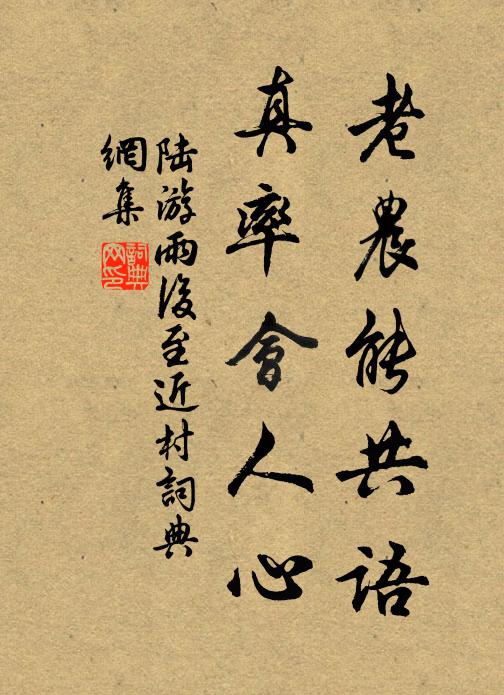 老農能共語
真率會人心
陸游雨後至近村詞典
網集
詞典
网印